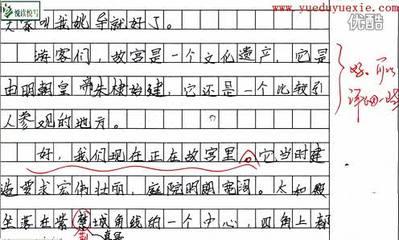 悦读悦写
www.yueduyuexie.com
优酷
叫我姚导就好了。
游客们，故宫是一个文化遗产，它是
由明朝皇帝朱棣始建，它还是一个比较引
人参观的地方。
好，我们现在正在故宫里。它当时建
造要求宏伟壮丽，庭院明朗宽阔。太和殿
坐落在紫禁城角线的一个中心，四角上都
好，可以